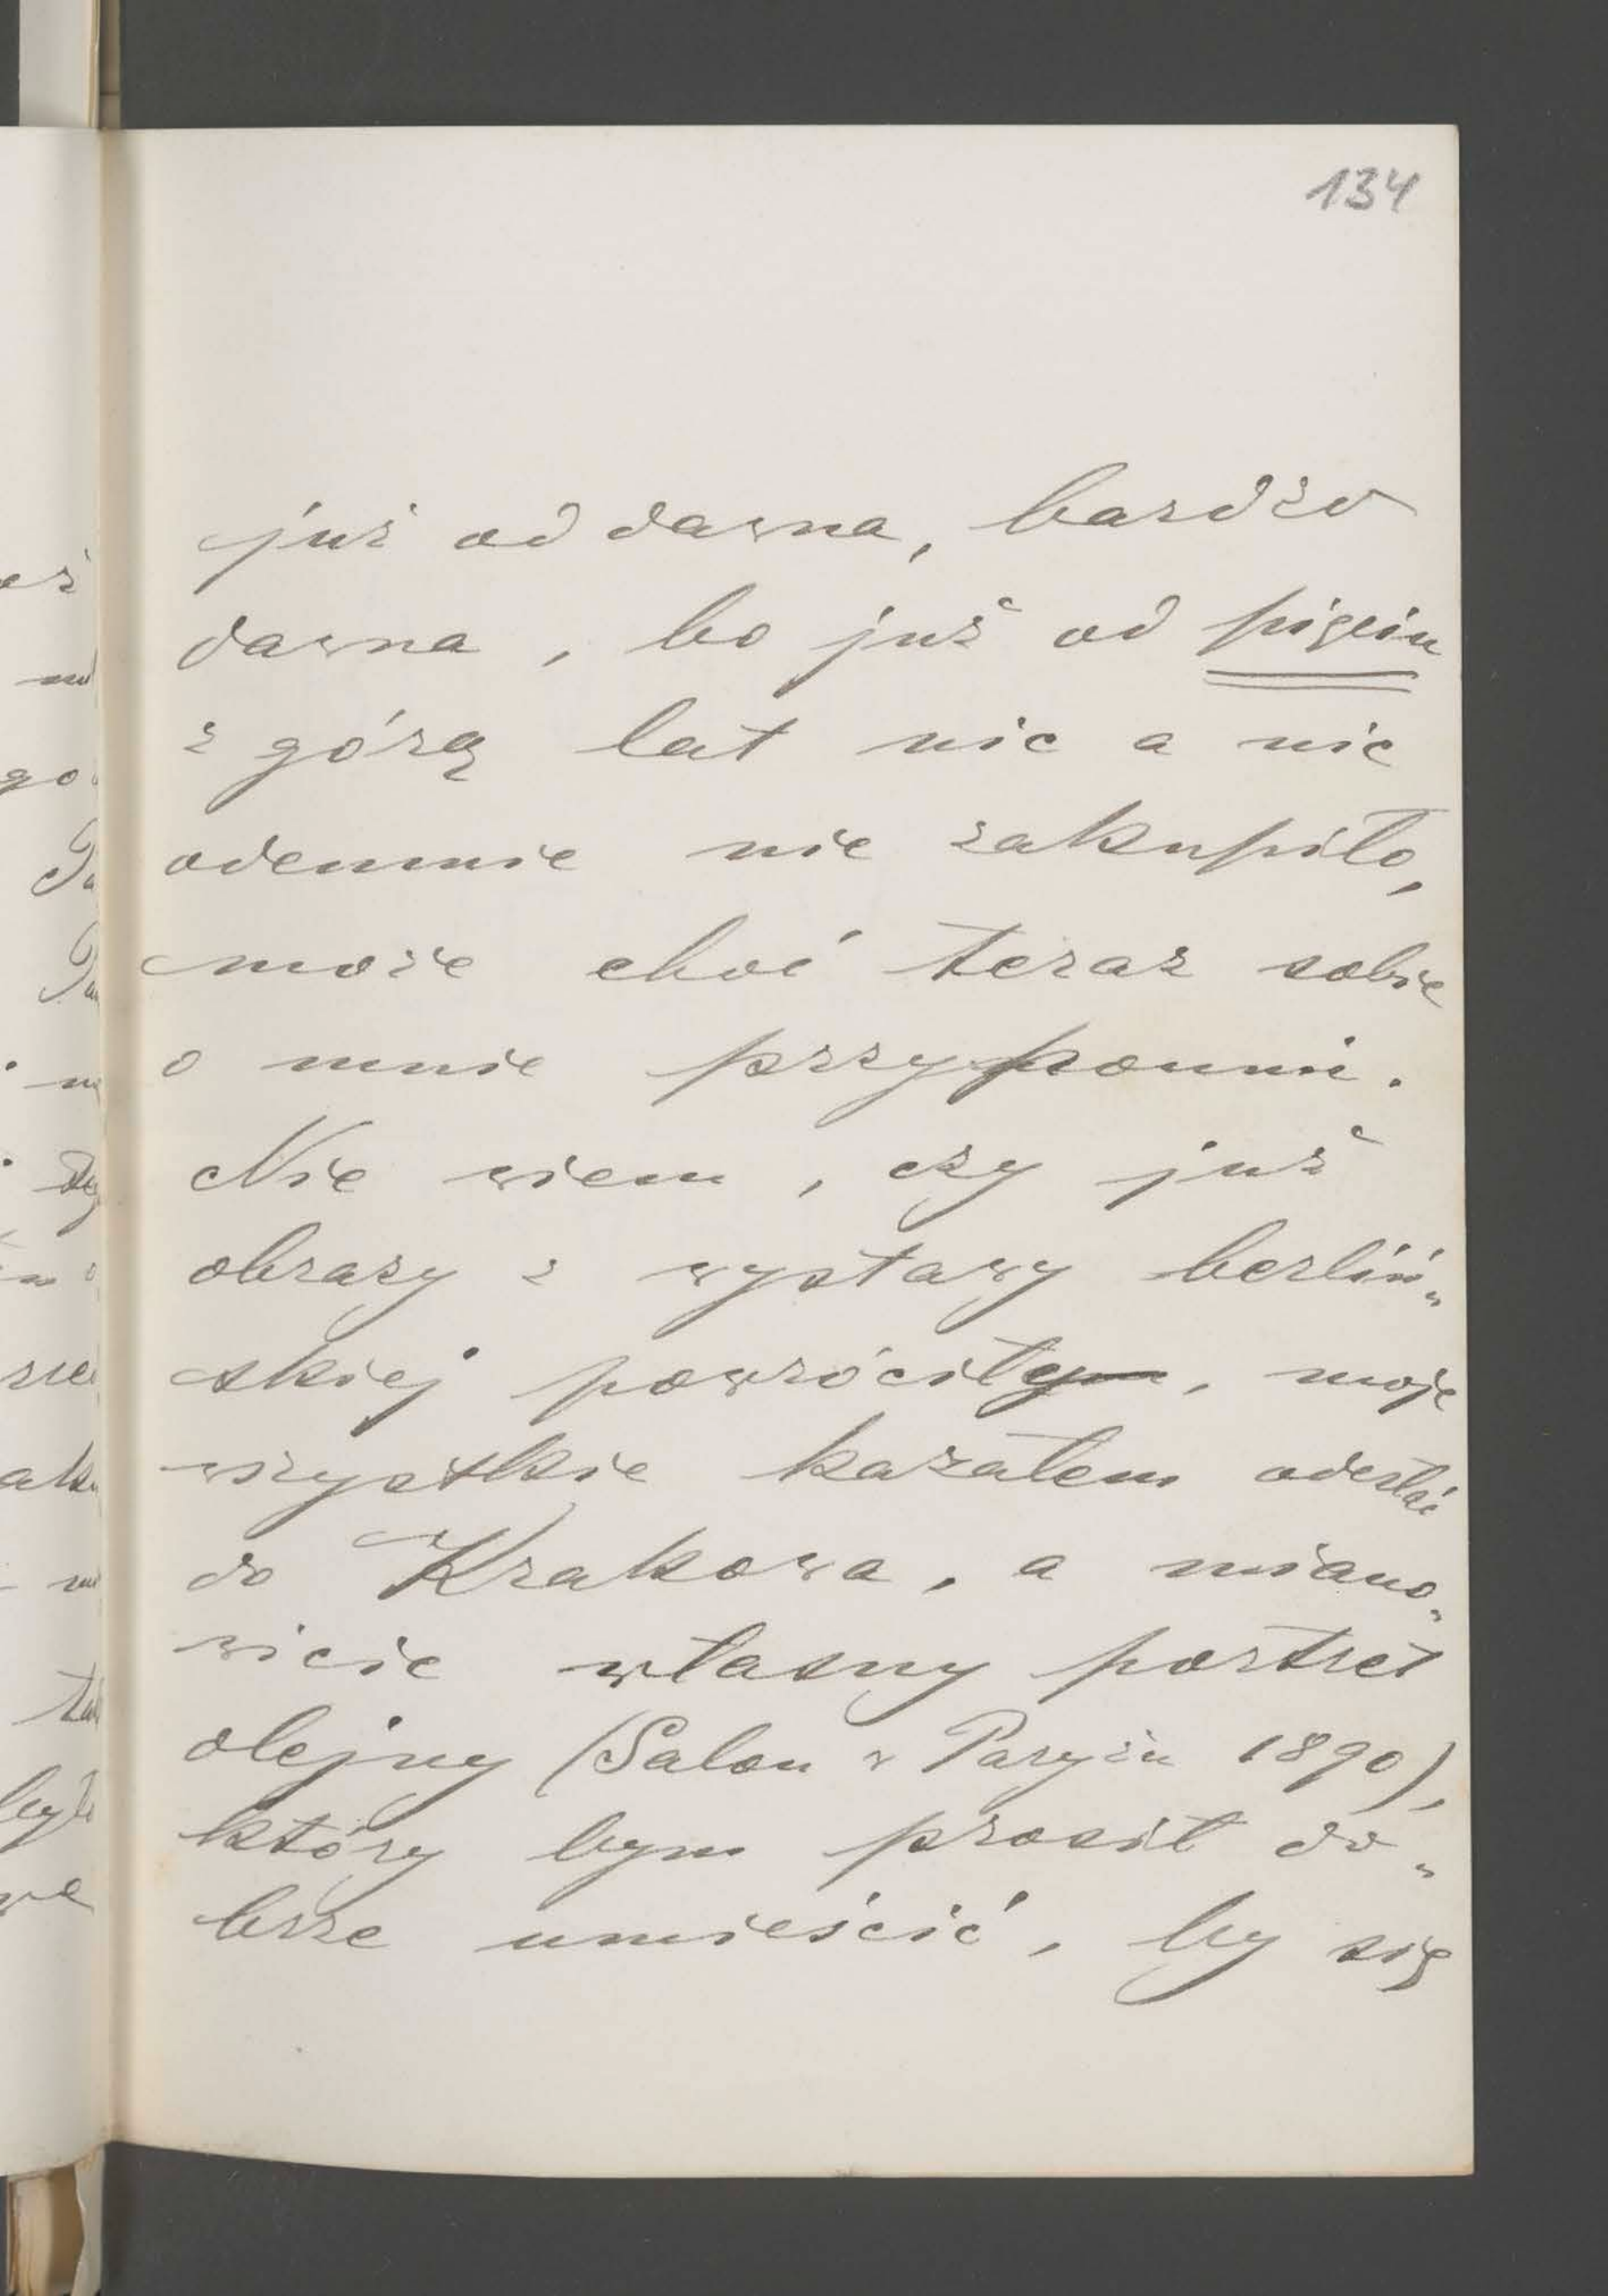 134
już od dawna, bardzo
dawna, bo już od pięciu
z górą lat nic a nic
odemnie nie zakupiło,
może choć teraz sobie
o mnie przypomni.
Nie wiem, czy już
obrazy z wystawy berliń„
skiej powróciłym, moje
wszystkie kazałem odesłać
do Krakowa, a miano„
wicie własny portret
olejny (Salon w Paryżu 1890),
który bym prosił do„
brze umieścić, by się